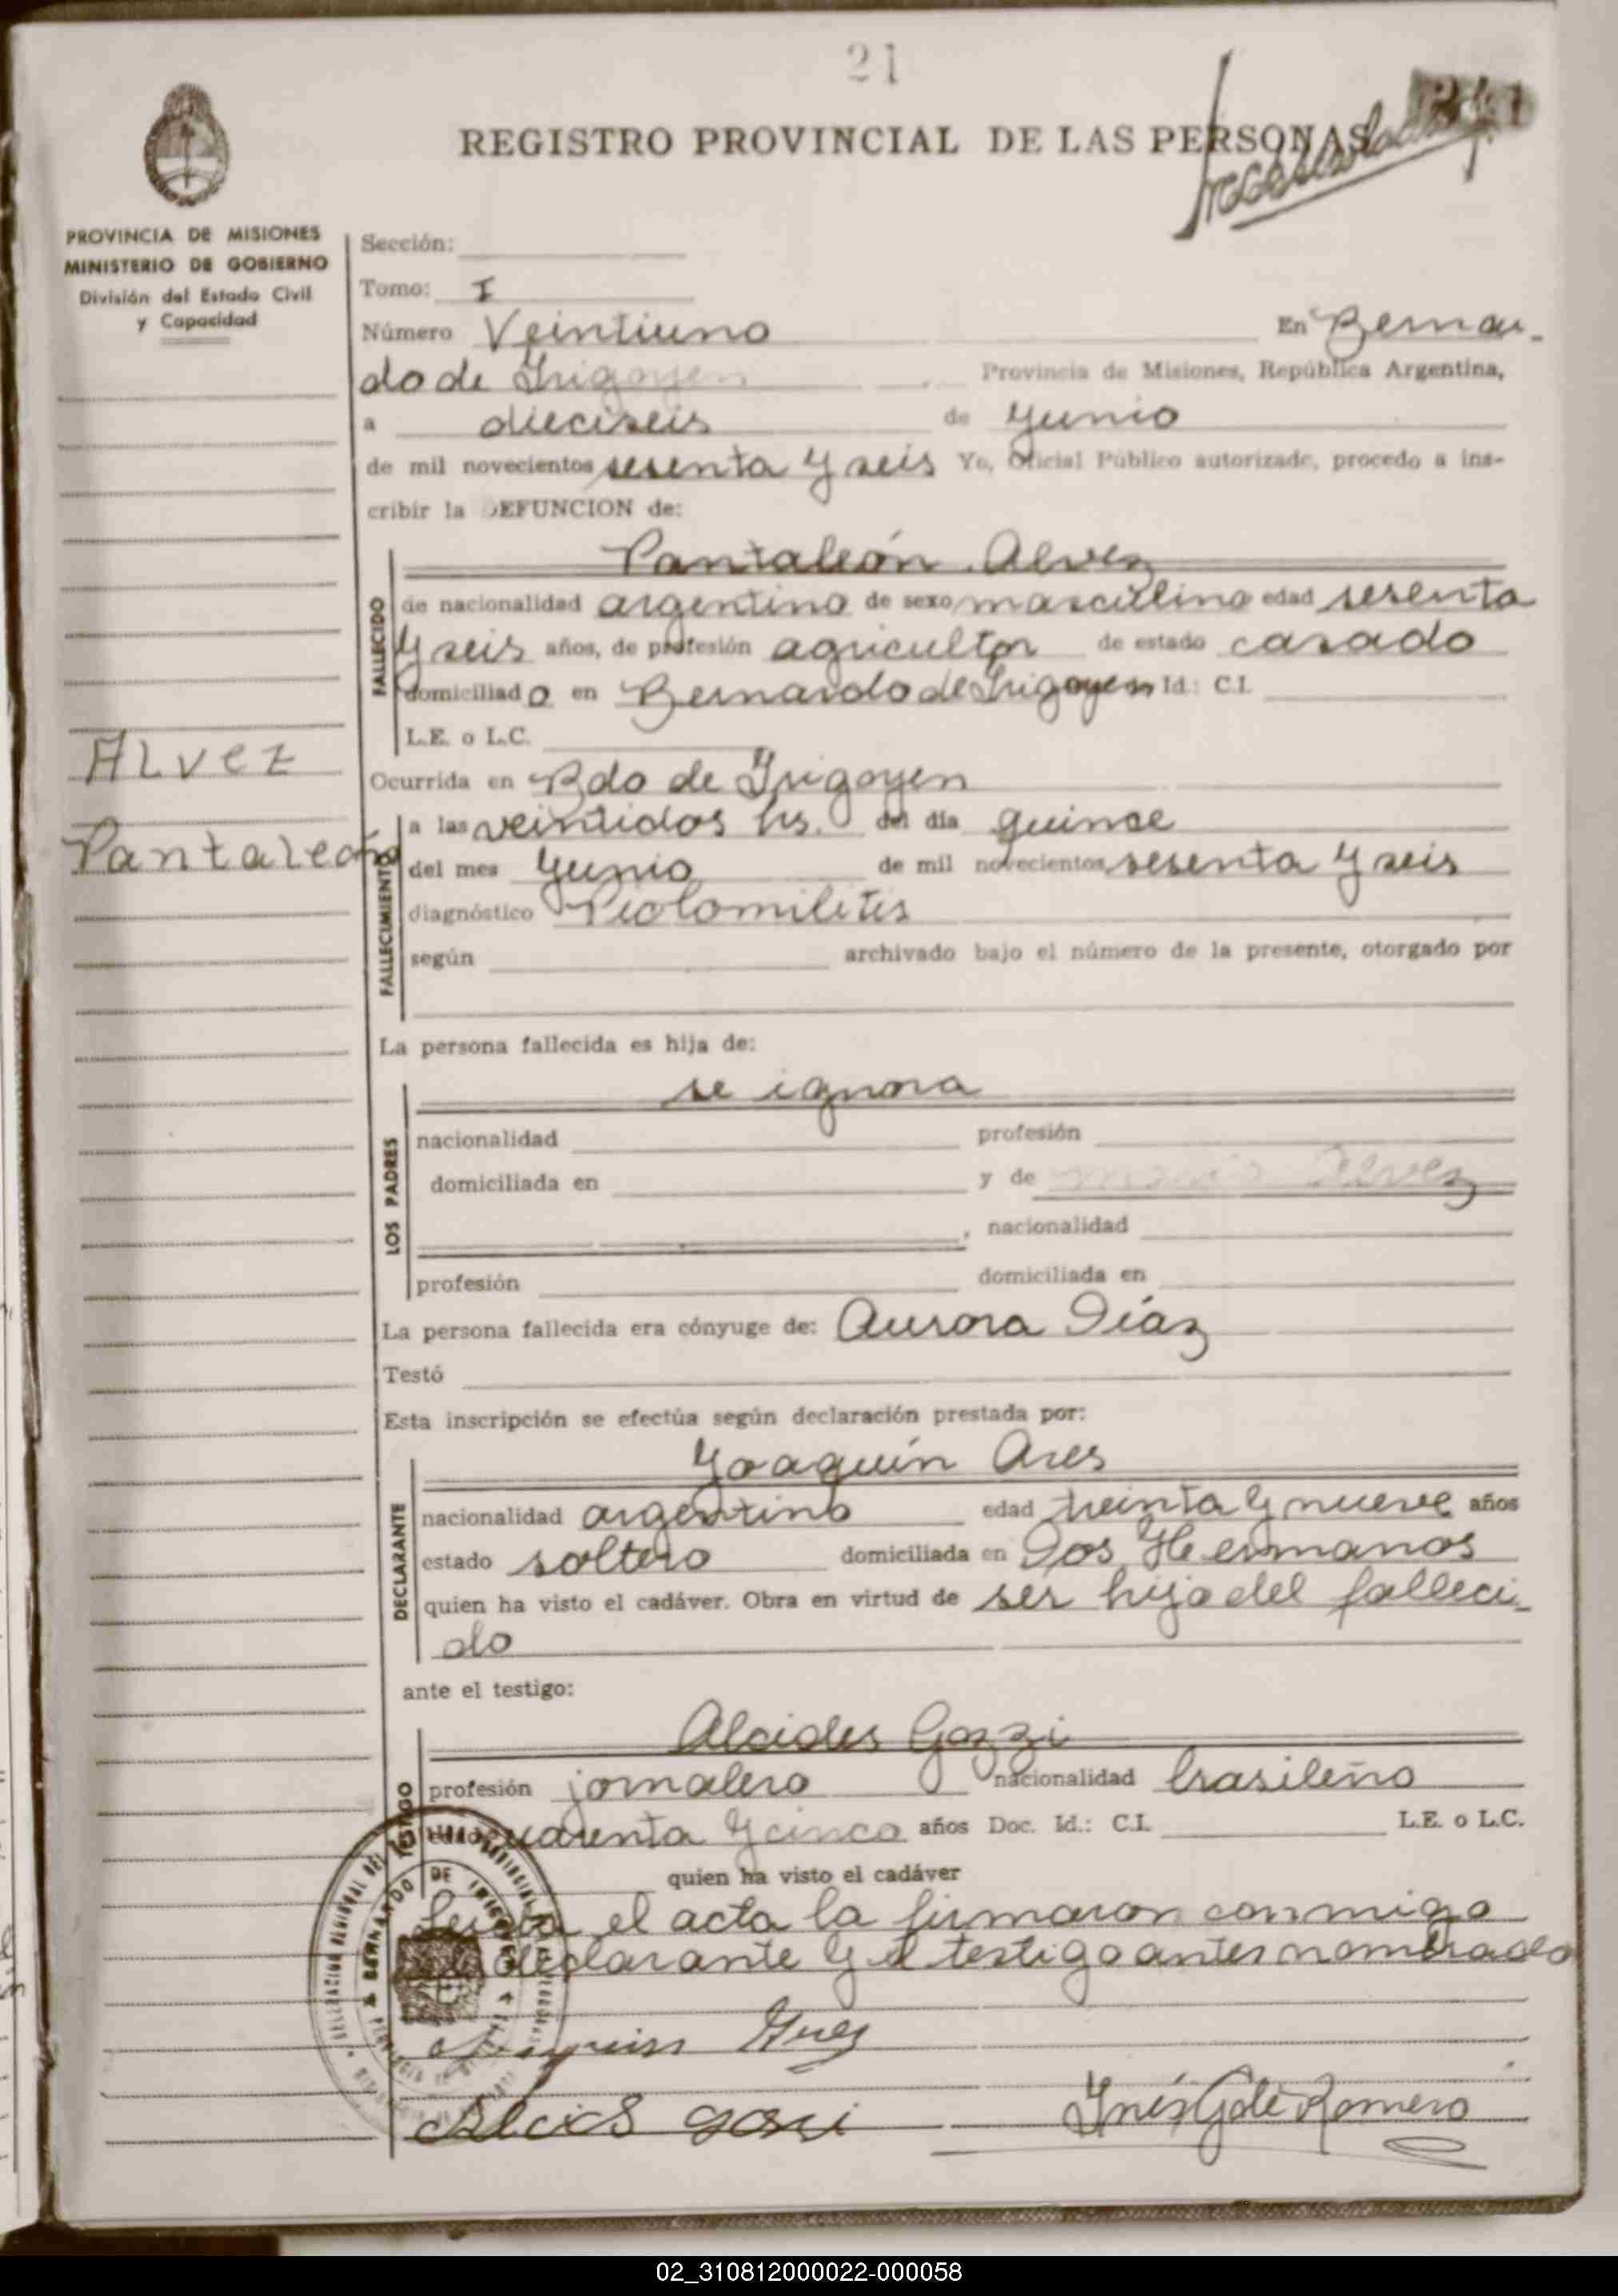 21
REGISTRO PROVINCIAL DE LAS PERSONAS
PROVINCIA DE MISIONES
MINISTERIO DE GOBIERNO
División del Estado Civil
y Capacidad
Sección:
Tomo: I
Número Veintiuno En Bernar-
do de Irigoyen Provincia de Misiones, República Argentina,
a dieciseis de Junio
de mil novecientos sesenta y seis Yo, Oficial Público autorizado, procedo a ins-
cribir la DEFUNCION de:
Pantaleón Alvez
FALLECIDO
de nacionalidad argentino de sexo masculino edad sesenta
y seis años, de profesión agricultor de estado casado
domiciliado en Bernardo de Irigoyen Id: C.I.
L.E. o L.C.
ALvez
Pantaleón
Ocurrida en Bdo de Irigoyen
FALLECIMIENTO
a las veintidos hs. del día quince
del mes Junio de mil novecientos sesenta y seis
diagnóstico
según archivado bajo el número de la presente, otorgado por
La persona fallecida es hija de:
se ignora
LOS PADRES
nacionalidad profesión
domiciliada en y de Alvez
, nacionalidad
profesión domiciliada en
La persona fallecida era cónyuge de: Aurora Díaz
Testó
Esta inscripción se efectúa según declaración prestada por:
Joaquín Ares
DECLARANTE
nacionalidad argentino edad treinta y nueve años
estado soltero domiciliada en Dos Hermanos
quien ha visto el cadáver. Obra en virtud de ser hijo del falleci-
do
ante el testigo:
Alcides Gozzi
TESTIGO
profesión jornalero nacionalidad brasileño
cuarenta y cinco años Doc. Id.: C.I. L.E. o L.C.
quien ha visto el cadáver
el acta la firmaron conmigo
declarante y el testigo antes nombrado
Inés G de Romero
02_310812000022-000058